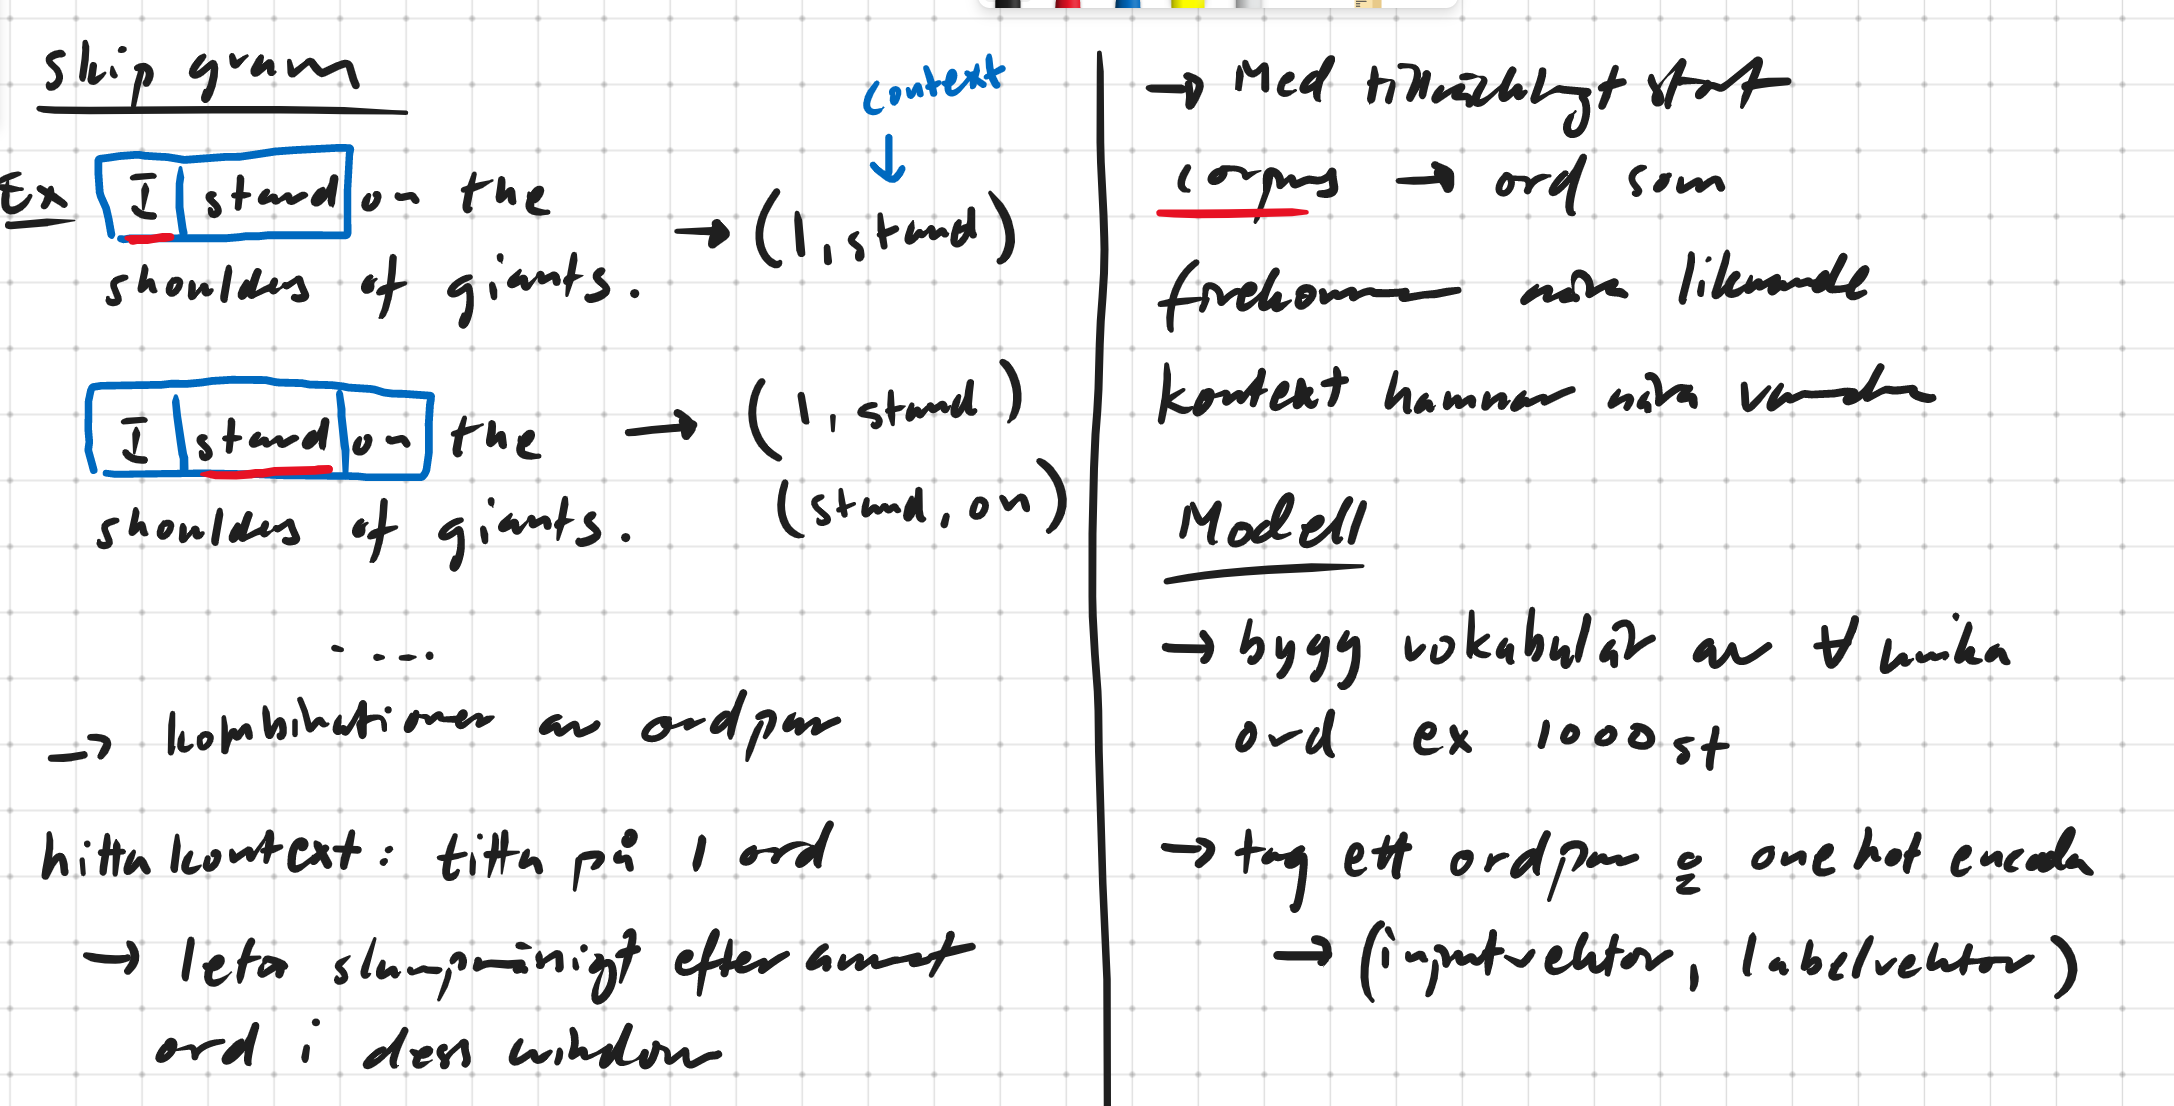 skip gram
context
Ex I stand on the → (I, stand)
shoulders of giants.
I stand on the → (I, stand)
(stand, on)
shoulders of giants.
....
→ kombinationer av ordpar
hitta kontext: titta på 1 ord
→ leta slumpmässigt efter annat
ord i dess window
→ Med tillräckligt stort
corpus → ord som
förekommer nära liknande
kontext hamnar nära varandra
Modell
→ bygg vokabulär av ∀ unika
ord ex 1000 st
→ tag ett ordpar & one hot encoda
→ (inputvektor, labelvektor)